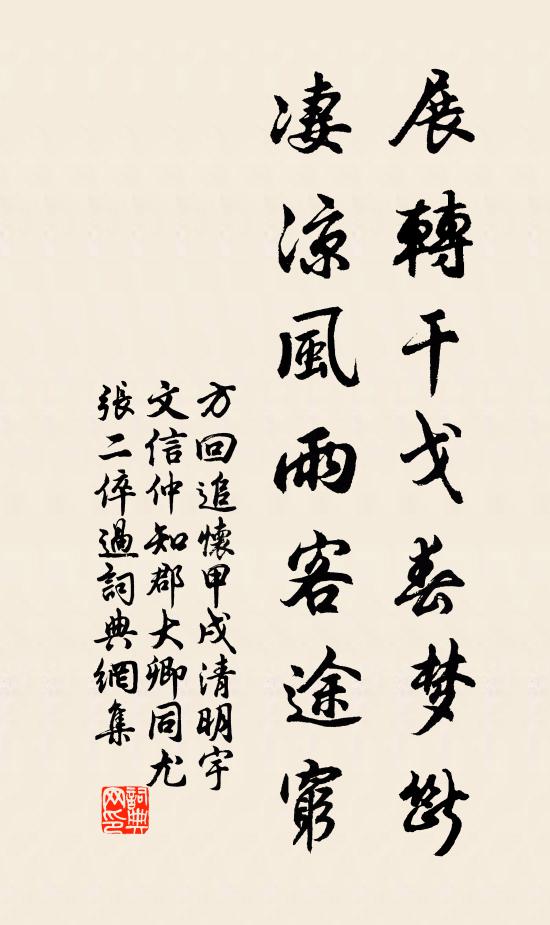 展轉干戈春梦断
凄涼風雨客途窮
方回追懷甲戌清明宇
文信仲知郡大卿同尤
張二倅過詞典網集
詞典网印